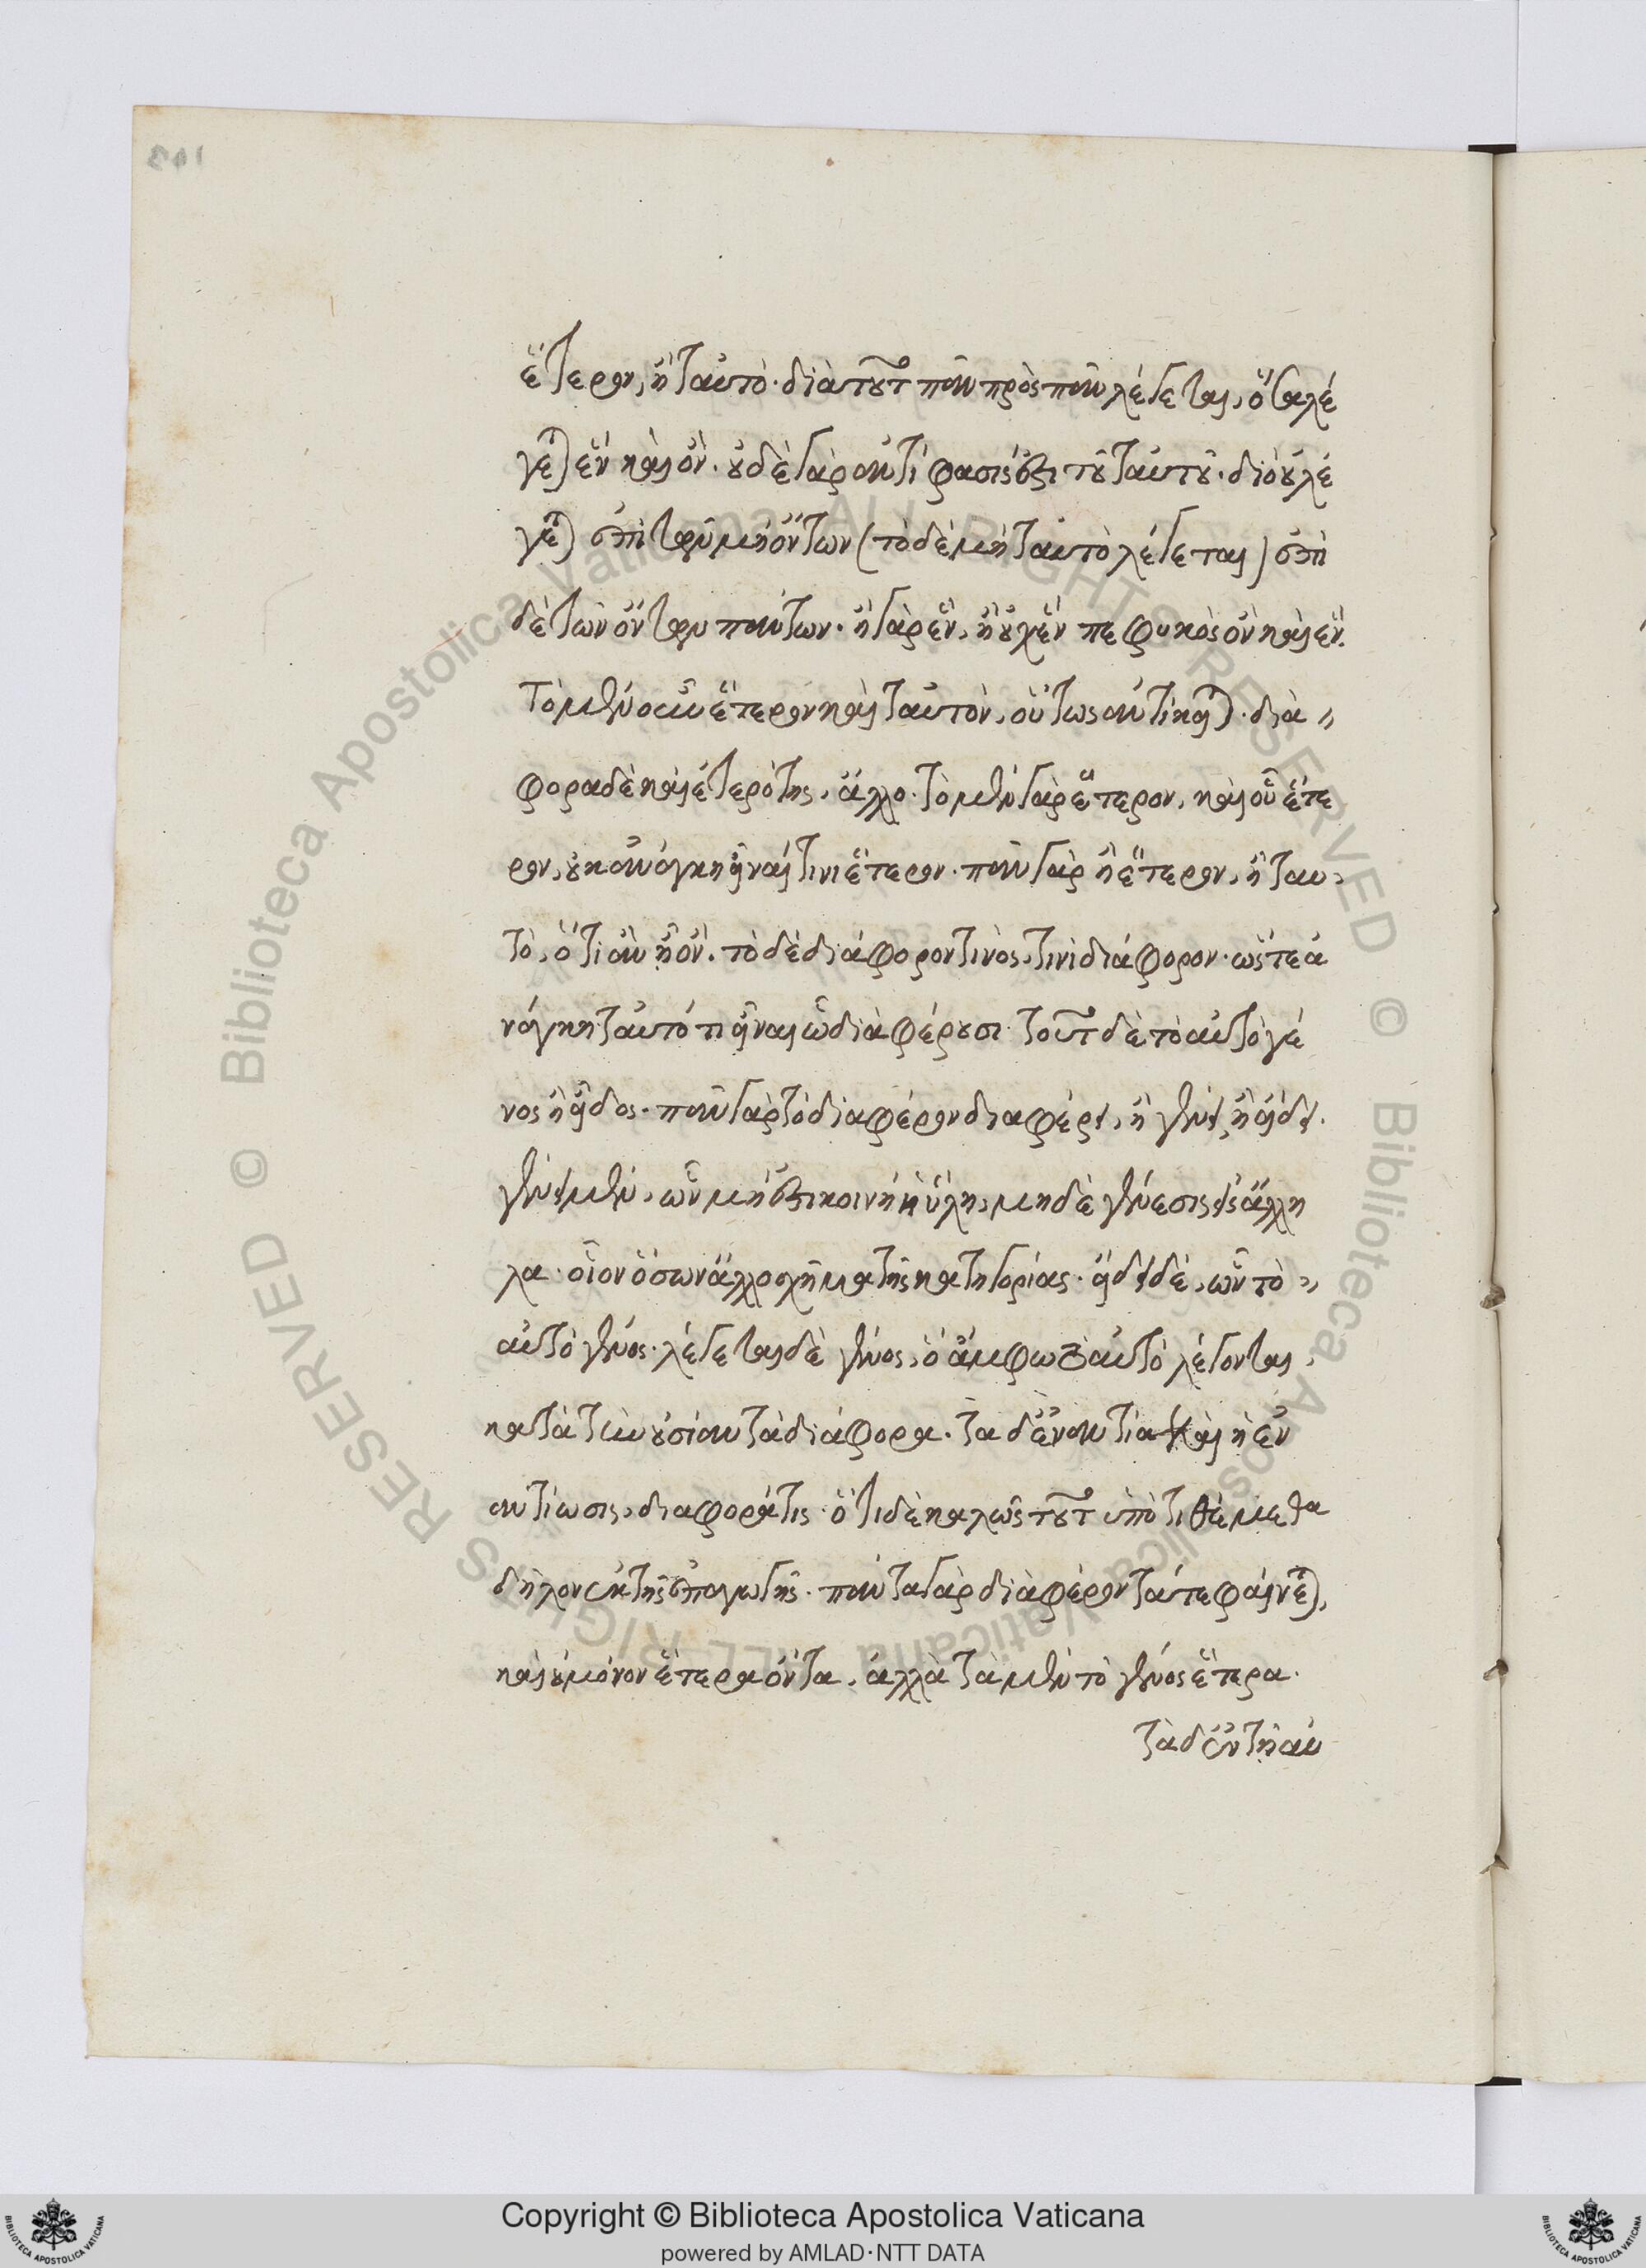 ἕτερον, ἢ ταὐτὸ· διὰ τοῦτο πᾶν πρὸς πᾶν λέγεται, ὅσα λέ
γεται ἓν καὶ ὄν. οὐδὲ γὰρ ἀντίφασίς ἐστι τοῦ ταὐτοῦ· διὸ οὐ λέ
γεται ἐπὶ τῶν μὴ ὄντων (τὸ δὲ μὴ ταὐτὸ λέγεται) ἐπὶ
δὲ τῶν ὄντων πάντων. ἢ γὰρ ἓν, ἢ οὐχ ἓν πεφυκὸς ὂν καὶ ἕν.
Τὸ μὲν οὖν ἕτερον καὶ ταὐτὸν, οὕτως ἀντίκειται. δια〃
φορα δὲ καὶ ἑτερότης, ἄλλο. τὸ μὲν γὰρ ἕτερον, καὶ οὗ ἕτε
ρον, οὐκ ἀνάγκη εἶναι τινὶ ἕτερον. πᾶν γὰρ ἢ ἕτερον, ἢ ταυ
τὸ, ὅτι ἂν ᾖ ὄν. τὸ δὲ διάφορον τινὸς, τινὶ διάφορον· ὥστε ἀ
νάγκη ταὐτό τι εἶναι ᾧ διαφέρουσι. τοῦτο δὲ τὸ αὐτὸ γέ
νος ἢ εἶδος. πᾶν γὰρ τὸ διαφέρον διαφέρει, ἢ γένει, ἢ εἴδει.
γένει μὲν, ὧν μή ἐστι κοινὴ ἡ ὕλη, μηδὲ γένεσις εἰς ἄλλη
λα. οἷον ὅσων ἄλλο σχῆμα τῆς κατηγορίας. εἴδει δὲ, ὧν τὸ 〃
αὐτὸ γένος. λέγεται δὲ γένος, ὃ ἄμφω ταὐτὸ λέγονται,
κατὰ τὴν οὐσίαν τὰ διάφορα. τὰ δ' ἐναντία καὶ ἡ ἐν
αντίωσις, διαφορά τις. ὅτι δὲ καλῶς τοῦτο ὑποτιθέμεθα
δῆλον ἐκ τῆς ἐπαγωγῆς. πάντα γὰρ διαφέροντά τε φαίνεται,
καὶ οὐ μόνον ἕτερα ὄντα, ἀλλὰ τὰ μὲν τὸ γένος ἕτερα.
τὰ δ' ἐν τῇ αὐ
© Biblioteca Apostolica Vaticana ALL RIGHTS RESERVED © Biblioteca Apostolica Vaticana ALL RIGHTS RESERVED
Copyright © Biblioteca Apostolica Vaticana
powered by AMLAD·NTT DATA